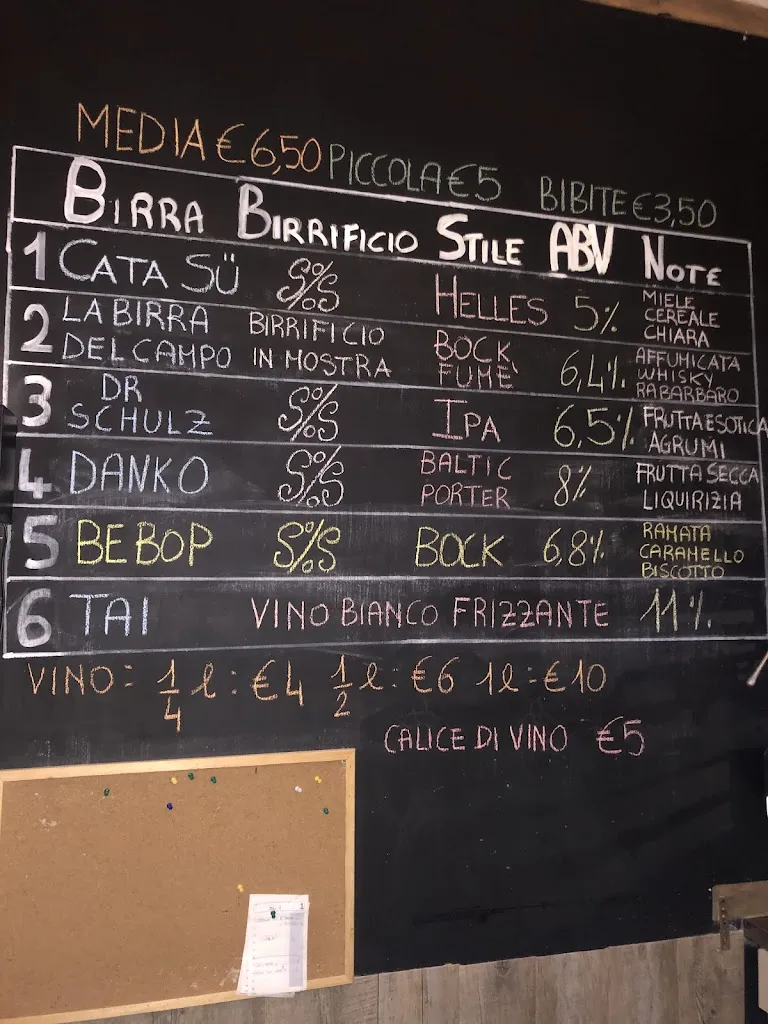 MEDIA €6,50 PICCOLA €5 BIBITE €3,50
BIRRA BIRRIFICIO STILE ABV NOTE
1 CATA SÜ S%S HELLES 5% MIELE
CEREALE
CHIARA
2 LA BIRRA DEL CAMPO BIRRIFICIO IN MOSTRA BOCK FUMÈ 6,4% AFFUMICATA
WHISKY
RABARBARO
3 DR SCHULZ S%S IPA 6,5% FRUTTA ESOTICA
AGRUMI
4 DANKO S%S BALTIC PORTER 8% FRUTTA SECCA
LIQUIRIZIA
5 BEBOP S%S BOCK 6,8% RAMATA
CARAMELLO
BISCOTTO
6 TAI VINO BIANCO FRIZZANTE 11%
VINO: 1/4 l: €4 1/2 l: €6 1l: €10
CALICE DI VINO €5